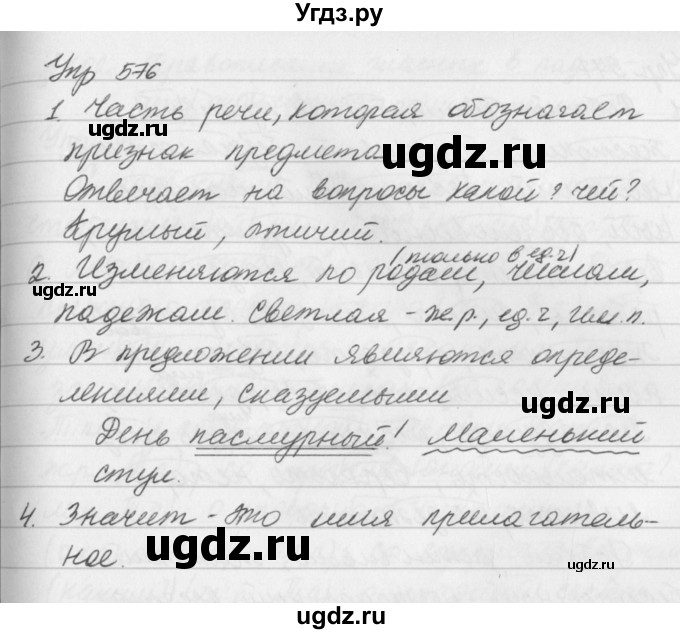 Угдз.ру
Упр 576
1. Часть речи, которая обозначает
ugdz.ru
признак предмета
ugdz.ru
Отвечает на вопросы какой? чей?
Круглый, птичий.
(только в ед.ч)
2. Изменяются по родам, числам,
ugdz.ru
падежам. Светлая - ж.р., ед.ч, им.п.
ugdz.ru
3. В предложении являются опреде-
лениями, сказуемыми
ugdz.ru
День пасмурный! Маленький
стул.
4. Значит - это имя прилагатель-
ugdz.ru
ное.
ugdz.ru
ugdz.ru